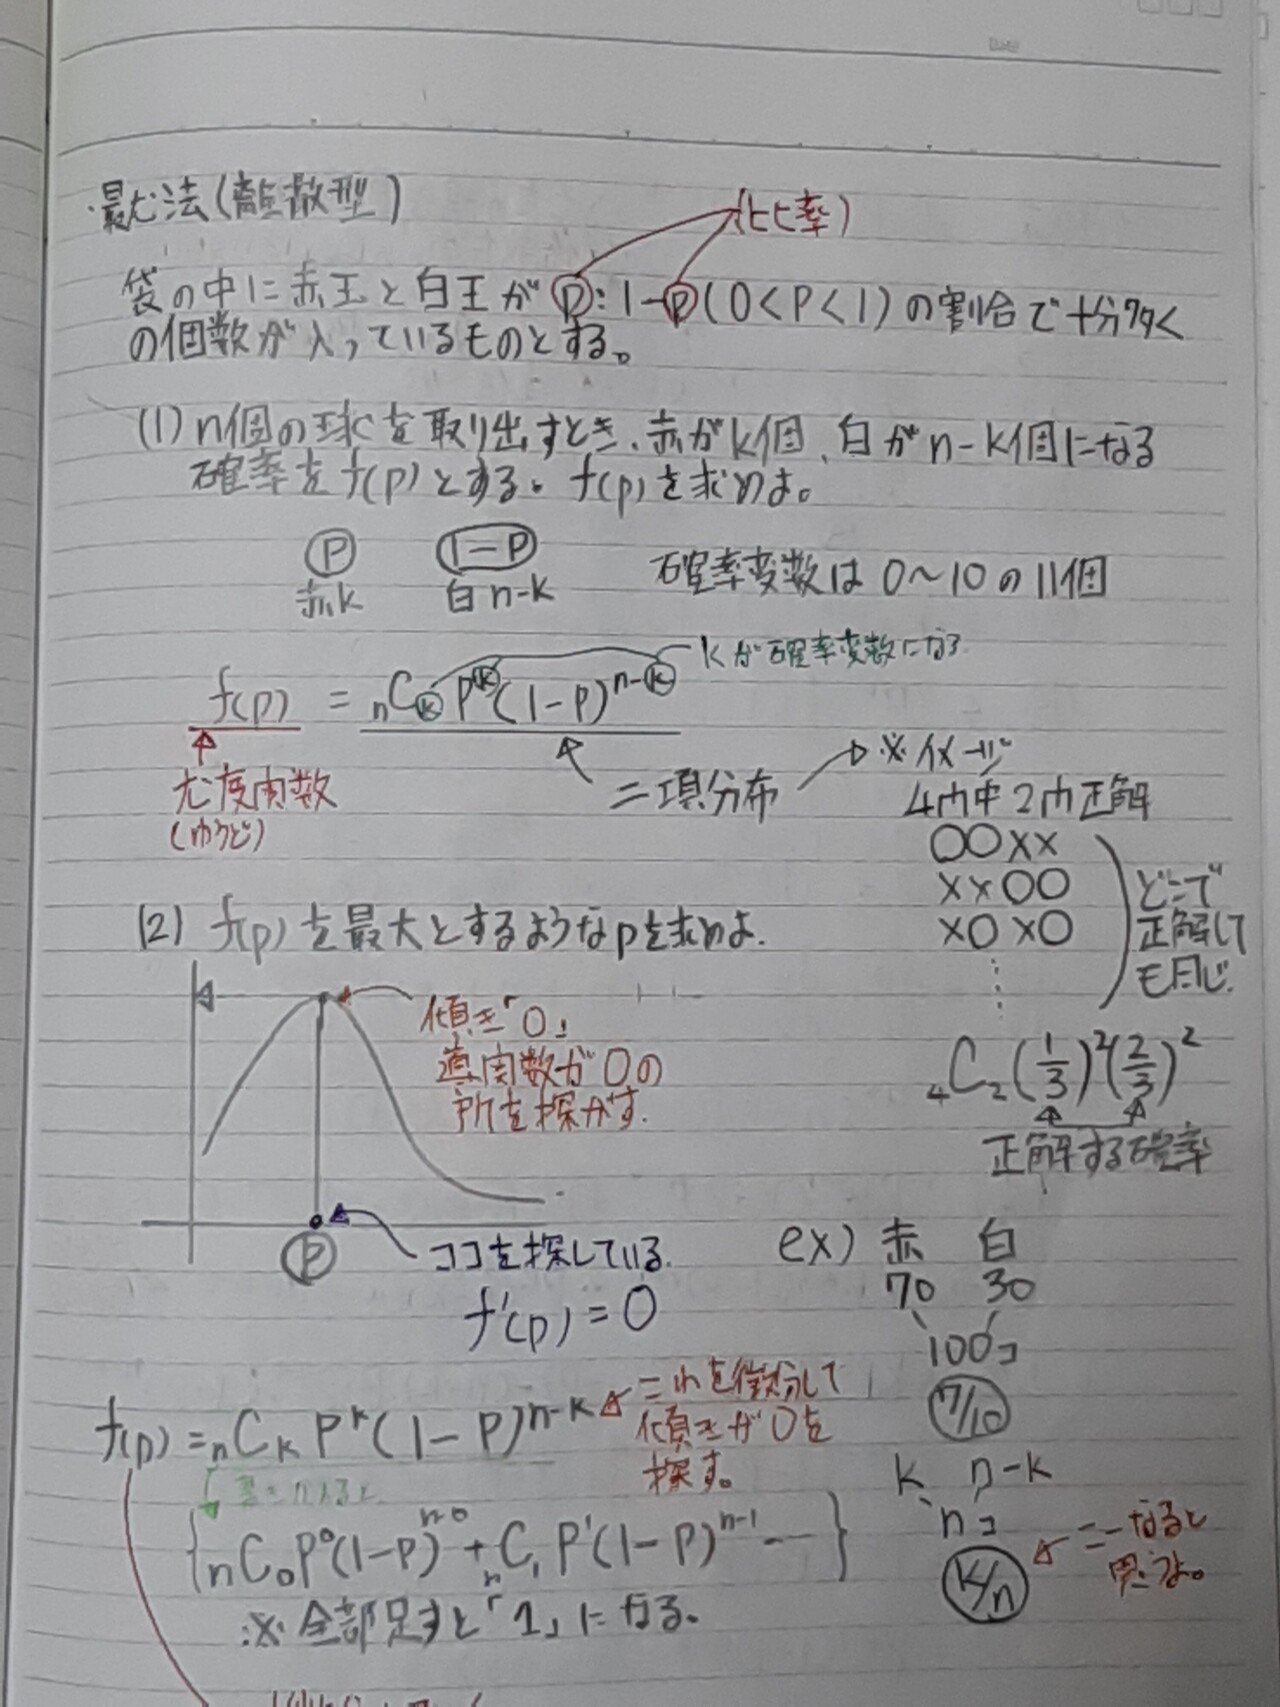 ・最尤法(離散型)
(比率)
袋の中に赤玉と白玉がp:1-p(0<p<1)の割合で十分多く
の個数が入っているものとする。
(1) n個の球を取り出すとき、赤がk個、白がn-k個になる
確率をf(p)とする。f(p)を求めよ。
p 1-p
赤k 白n-k
確率変数は0~10の11個
kが確率変数になる
f(p) = nCk p^k(1-p)^n-k
尤度関数
(ゆうど)
二項分布
※イメージ
4門中2門正解
○○××
××○○
×○×○
どこで
正解して
も同じ
4C2(1/3)^2(2/3)^2
正解する確率
(2) f(p)を最大とするようなpを求めよ.
傾き「0」
導関数が0の
所を探がす.
p
ココを探している.
f'(p)=0
ex) 赤 白
70 30
100コ
7/10
k n-k
nコ
k/n
こーなると
思うよ。
f(p)=nCk p^k(1-p)^n-k
これを微分して
傾きが0を
探す。
{nC0p^0(1-p)^n-0+nC1p^1(1-p)^n-1…}
※全部足すと「1」になる。